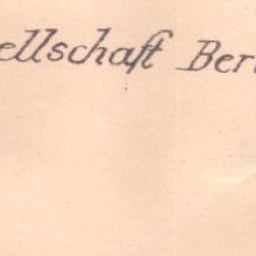 ellschaft Ber